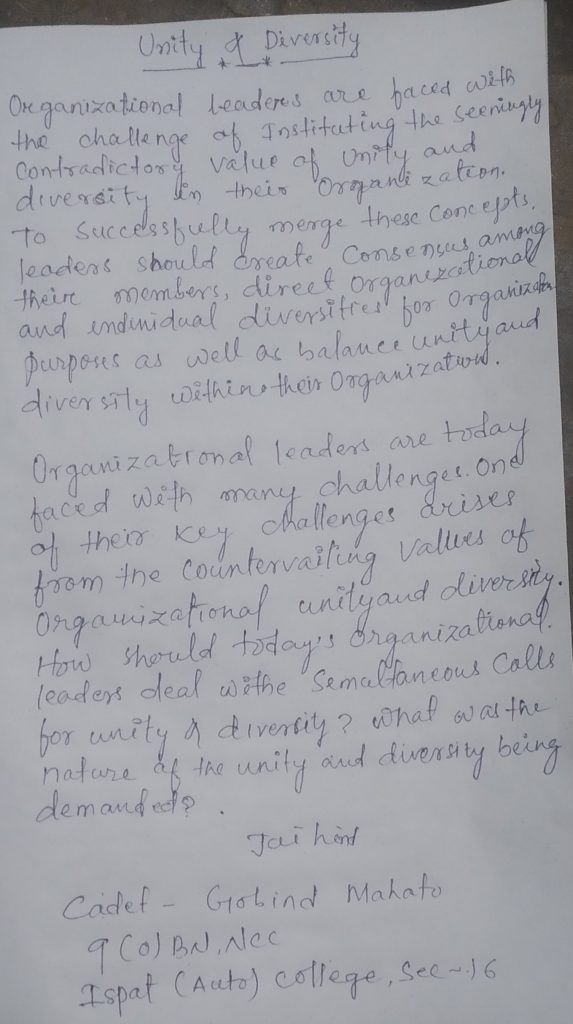 Unity & Diversity
Organizational leaders are faced with
the challenge of Instituting the seemingly
Contradictory value of Unity and
diversity in their Organization.
To Successfully merge these Concepts,
leaders should create Consensus among
their members, direct organizational
and individual diversities for Organization
purposes as well as balance unity and
diversity within their Organization.
Organizational leaders are today
faced with many challenges. One
of their key challenges arises
from the countervailing values of
Organizational unity and diversity.
How should today's Organizational
leaders deal withe Semultaneous Calls
for unity & diversity? what was the
nature of the unity and diversity being
demanded?
Jai hind
Cadet - Gobind Mahato
9 (O) BN, NCC
Ispat (Auto) College, Sec-16